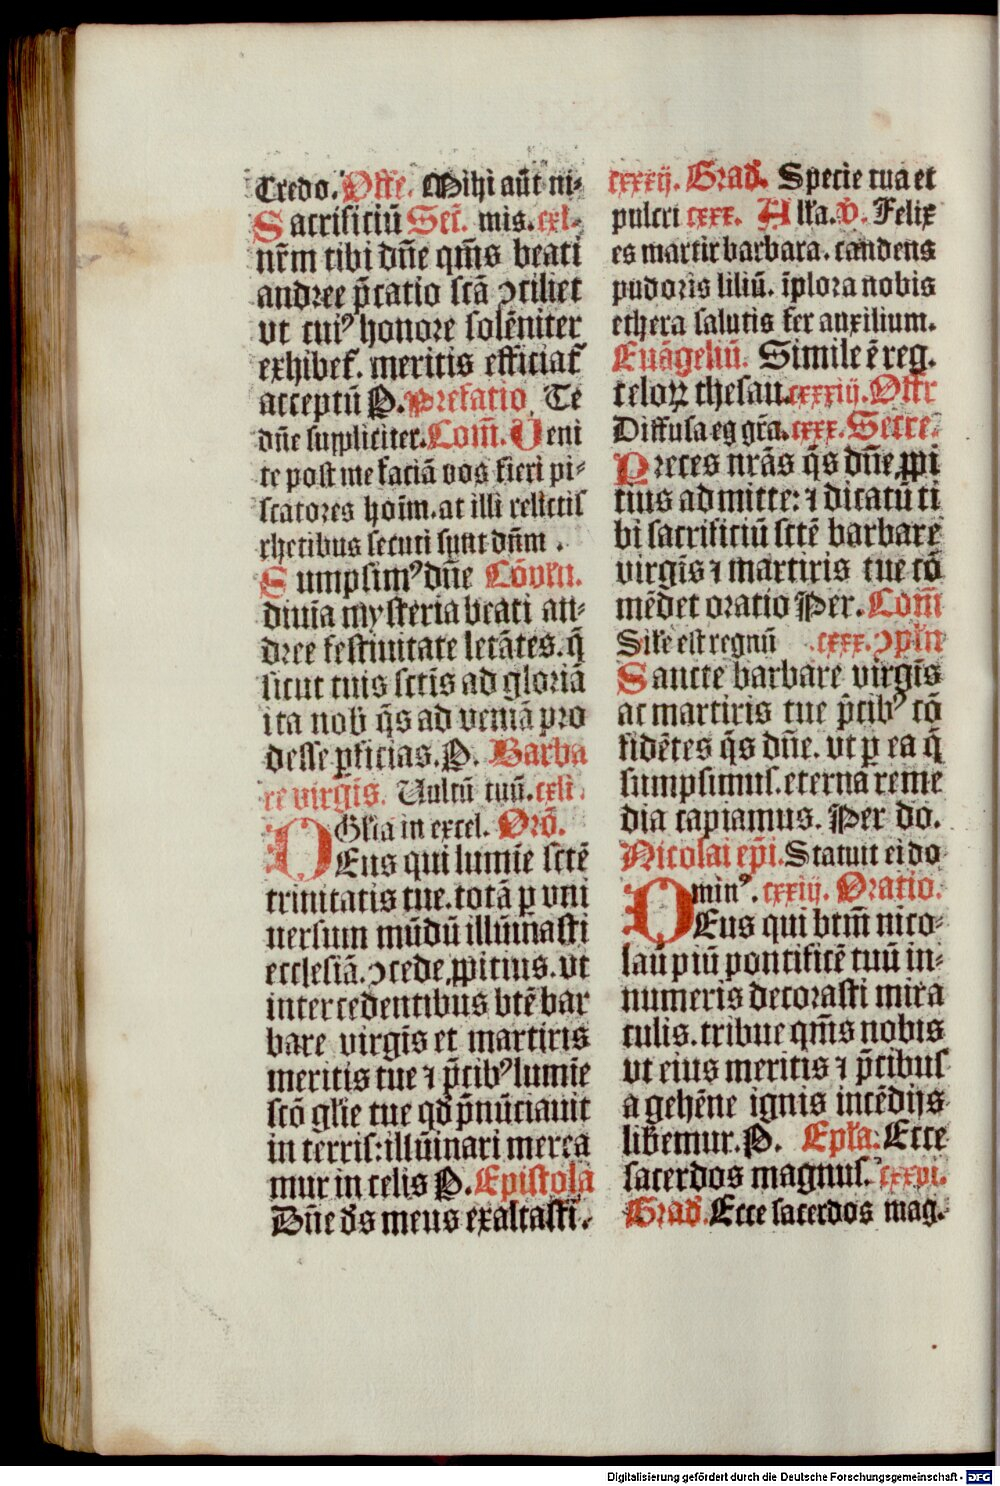 Credo. Offe. Mihi aūt ni-
Sacrificiū Sec̄. mis. cxl.
nr̄m tibi dn̄e qm̄s beati
andree p̄catio scā ↄciliet
vt tuiꝰ honore solēniter
exhibet᷑. meritis efficiat᷑
acceptū P. Prefatio Te
dn̄e suppliciter. Com̄. Ueni
te post me faciā vos fieri pi-
scatores hoīm. at illi relictis
rhetibus secuti sunt dn̄m.
Sumpsimꝰ dn̄e Cōpln.
diuīa mysteria beati an-
dree festiuitate letātes. q̄
sicut tuis sctīs ad gloriā
ita nob̄ q̄s ad veniā pro
desse ꝑficias. P. Barba
re virgīs. Uultū tuū. cxli.
Gl̄ia in excel. Orō.
DEus qui lumīe sctē
trinitatis tue. totā ꝑ vni
uersum mūdū illūinasti
ecclesiā. ↄcede ꝓpitius. vt
intercedentibus btē bar
bare virgīs et martiris
meritis tue ⁊ p̄cibꝰ lumīe
scō gl̄ie tue qd̄ p̄nūciauit
in terris: illūinari merea
mur in celis P. Epistola
Dn̄e ds̄ meus exaltasti.
cxxxij. Grad̄. Specie tua et
pulcri cxxx. All̄a. v̄. Felix
es martir barbara. candens
pudoris liliū. īplora nobis
ethera salutis fer auxilium.
Euāgeliū. Simile ē reg.
celoꝝ thesau. cxxxiij. Offr
Diffusa eg gr̄a. cxxx. Secre.
Preces nrās q̄s dn̄e ꝓpi
tius admitte: ⁊ dicatū ti
bi sacrificiū sctē barbare
virgīs ⁊ martiris tue cō
mēdet oratio Per. Com̄
Sil̄e est regnū cxxx. ↄpl̄n
Sancte barbare virgīs
ac martiris tue p̄cibꝰ cō
fidētes q̄s dn̄e. vt ꝑ ea q̄
sumpsimus. eterna reme
dia capiamus. Per do.
Nicolai ep̄i. Statuit ei do
minꝰ. cxxiij. Oratio.
DEus qui btm̄ nico-
laū piū pontificē tuū in-
numeris decorasti mira
culis. tribue qm̄s nobis
vt eius meritis ⁊ p̄cibus
a gehēne ignis incēdijs
lib̄emur. P. Epl̄a. Ecce
sacerdos magnus. cxxvi.
Grad̄. Ecce sacerdos mag.
Digitalisierung gefördert durch die Deutsche Forschungsgemeinschaft - DFG